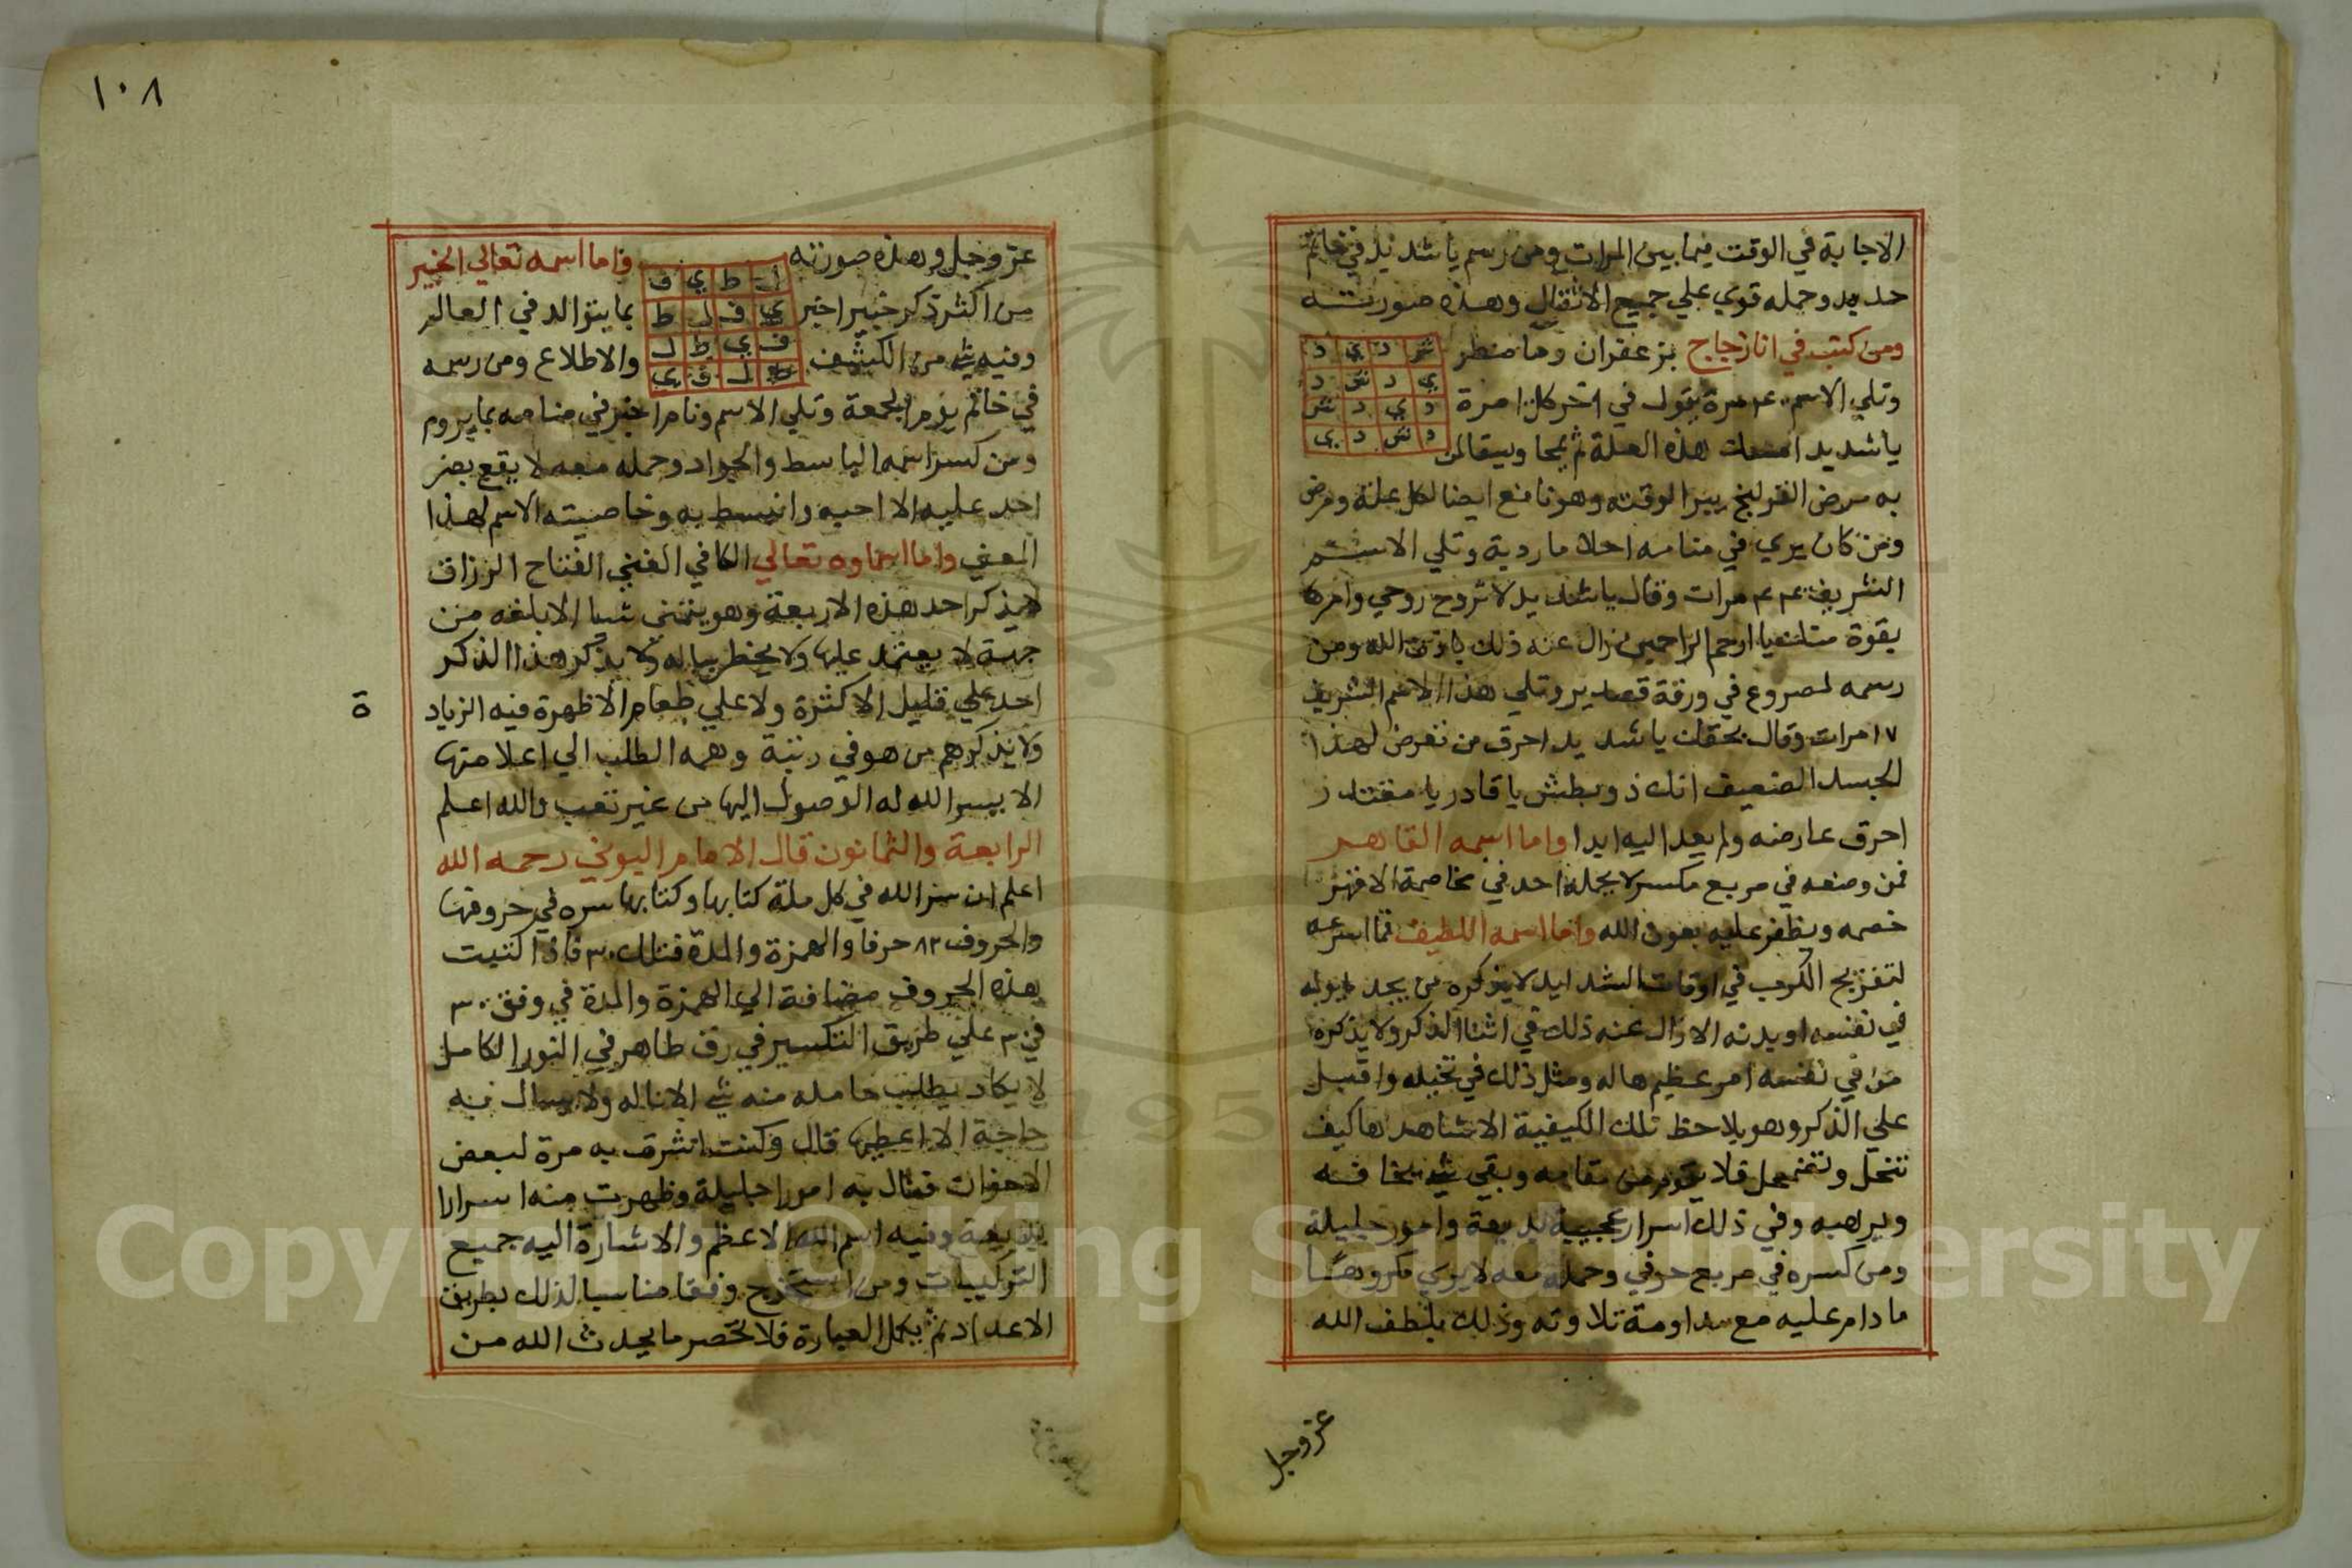 الاجابة في الوقت فيما بين المرات ومن رسم يا شديد في خاتم
حديد وحمله قوي علي جميع الاثقال وهذه صورتــه
ومن كتبه في انا زجاج بزعفران وما مطر
ش د ي د
وتلي الاسم مرة يقول في اخر كل مرة
ي د ش د
د ي د ش
يا شديد هذه العلة ثم يمحا ويسقا لمن
د ش د ي
به مرض القولنج يبرا لوقته وهو نافع ايضا لكل علة ومرض
ومن كان يري في منامه احلاما ردية وتلي الاسم
الشريف مرات وقال يا شديد لا تروح روحي وامركا
بقوة منك يا ارحم الراحمين زال عنه ذلك باذن الله ومن
رسمه لمصروع في ورقة قصدير وتلي هذا الاسم الشريف
١٧ مرات وقال بحقك يا شديد احرق من تعرض لهذا
الجسد الضعيف انك ذو بطش يا قادر يا مقتدر
احرق عارضه ولم يعد اليه ابدا واما اسمه القاهر
فمن وضعه في مربع مكسر لا يحمله احد في مخاصمة الا قهر
خصمه ويظفر عليه بعون الله واما اسمه اللطيف فما اسرعه
لتفريج الكرب في اوقات الشدايد لا يذكره من يجد
في نفسه او بدنه الا زال عنه ذلك في اثنا الذكر ولا يذكره
من في نفسه امر عظيم هاله ومثل ذلك في تخيله واقبل
علي الذكر وهو يلاحظ تلك الكيفية الا شاهدها كيف
تنحل وتضمحل فلا يقوم من مقامه وبقي شي يخافــه
ويرهبه وفي ذلك اسرار عجيبة بديعة وامور جليلة
ومن كسره في مربع حرفي وحمله معه لا يري مكروهــا
ما دام عليه مع مداومة تلاوته وذلك بلطف الله
عز وجل
١٠٨
عز وجل وهذه صورته واما اسمه تعالي الخبير
ل ط ي ف
من اكثر ذكر خبير اخبر بما يتوالد في العالم
ي ف ل ط
وفيه شي من الكشف والاطلاع ومن رسمه
ف ي ط ل
ط ل ف ي
في خاتم يوم الجمعة وتلي الاسم ونام اخبر في منامه بما يروم
ومن كسر اسمه الباسط والجواد وحمله معه لا يقع بصر
احد عليه الا احبه وانبسط به وخاصيته الاسم لهذا
المعني واما اسماوه تعالي الكافي الغني الفتاح الرزاق
لا يذكر احد هذه الاربعة وهو يتمني شيا الا بلغه من
جهة لا يعتمد عليها ولا يخطر بباله ولا يذكر هذا الذكر
احد علي قليل الا كثرة ولا علي طعام الا ظهرة فيه الزياد
ة
ولا يذكرهم من هو في رتبة وهمه الطلب الي اعلا منها
الا يسر الله له الوصول اليها من غير تعب والله اعلم
الرابعة والثمانون قال الامام البوني رحمه الله
اعلم ان سر الله في كل ملة كتابها وكتابها سره في حروفها
والحروف ٨٢ حرفا والهمزة والمدة فتلك ٣٠ فاذا كتبت
هذه الحروف مضافة الي الهمزة والمدة في وفق ٣٠
في ٣٠ علي طريق التكسير في رق طاهر في النور الكامل
لا يكاد يطلب حامله منه شي الا ناله ولا يسال فيه
حاجة الا اعطيها قال وكنت اشرت به مرة لبعض
الاخوان فنال به امورا جليلة وظهرت منه اسرارا
بديعة وفيه اسم الله الاعظم والاشارة اليه جميع
التركيبات ومن استخرج وفقا مناسبا لذلك بطريق
الاعداد ثم يكمل العبارة فلا تحصر ما يحدث الله من
Copyright © King Saud University
195